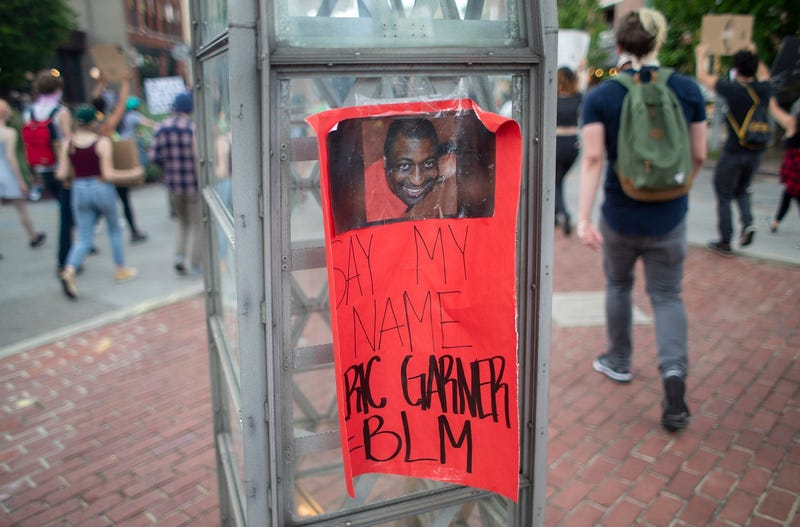 SAY MY
NAME
RIC GARNER
#BLM